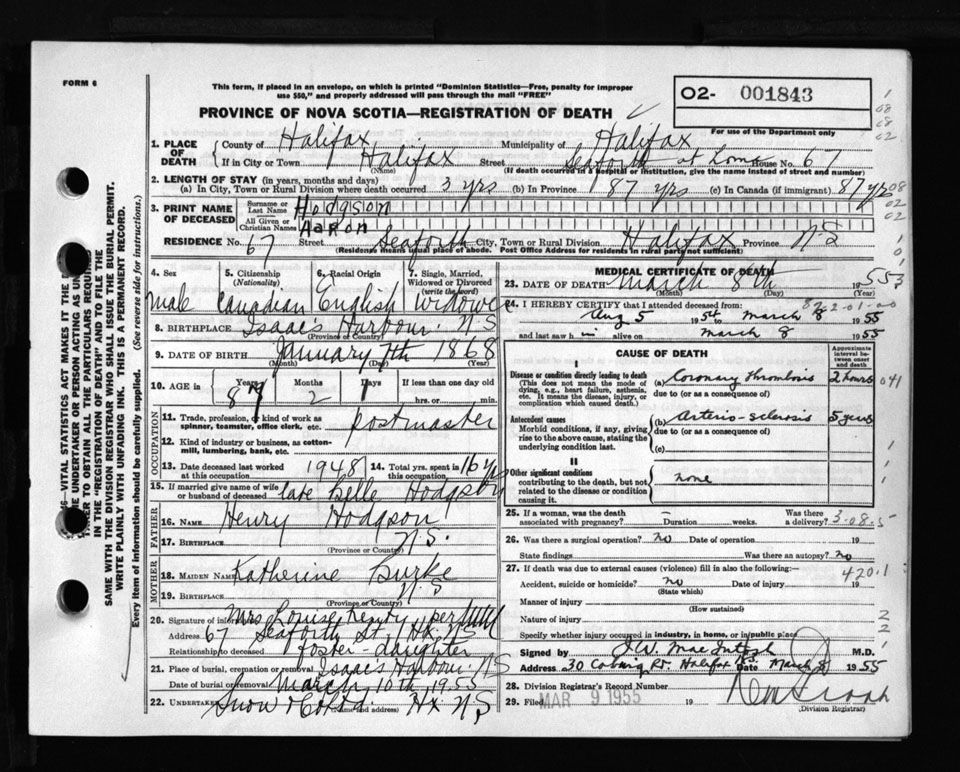 FORM 6
This form, if placed in an envelope, on which is printed "Dominion Statistics—Free, penalty for improper
use $50," and properly addressed will pass through the mail "FREE"
PROVINCE OF NOVA SCOTIA—REGISTRATION OF DEATH
O2- 001843
For use of the Department only
1. PLACE OF DEATH
County of Halifax Municipality of Halifax
If in City or Town Halifax Street Seaforth at home House No. 67
(Name) (If death occurred in a hospital or institution, give the name instead of street and number)
2. LENGTH OF STAY (in years, months and days)
(a) In City, Town or Rural Division where death occurred 3 yrs (b) In Province 87 yrs (c) In Canada (if immigrant) 87 yrs
3. PRINT NAME OF DECEASED
Surname or Last Name Hodgson
All Given or Christian Names Aaron
RESIDENCE No. 67 Street Seaforth City, Town or Rural Division Halifax Province N S
(Residence means usual place of abode. Post Office Address for residents in rural parts not sufficient)
4. Sex male
5. Citizenship (Nationality) Canadian
6. Racial Origin English
7. Single, Married, Widowed or Divorced (write the word) widowed
8. BIRTHPLACE Isaac's Harbour N S
(Province or Country)
9. DATE OF BIRTH January 7th 1868
(Month) (Day) (Year)
10. AGE in Years 87 Months 2 Days 1 If less than one day old
hrs. or min.
OCCUPATION
11. Trade, profession, or kind of work as
spinner, teamster, office clerk, etc. postmaster
12. Kind of industry or business, as cotton-
mill, lumbering, bank, etc.
13. Date deceased last worked at this occupation 1948
14. Total yrs. spent in this occupation 16 yrs
15. If married give name of wife
or husband of deceased late Belle Hodgson
FATHER
16. NAME Henry Hodgson
17. BIRTHPLACE N.S.
(Province or Country)
MOTHER
18. MAIDEN NAME Katherine Burke
19. BIRTHPLACE N S
(Province or Country)
20. Signature of informant Mrs Louise per
Address 67 Seaforth St. Hx. N S
Relationship to deceased foster-daughter
21. Place of burial, cremation or removal Isaac's Harbour N S
Date of burial or removal March 10th 1955
22. UNDERTAKER Snow & Co Ltd. Hx N S
(Name and address)
MEDICAL CERTIFICATE OF DEATH
23. DATE OF DEATH March 8th 1955
(Month) (Day) (Year)
24. I HEREBY CERTIFY that I attended deceased from:
Aug 5 1954 to March 8 1955
and last saw him alive on March 8 1955
CAUSE OF DEATH
Approximate interval between onset and death
I
Disease or condition directly leading to death
(This does not mean the mode of
dying, e.g., heart failure, asthenia,
etc. It means the disease, injury, or
complication which caused death.)
(a) Coronary Thrombosis 2 hours
due to (or as a consequence of)
041
Antecedent causes
Morbid conditions, if any, giving
rise to the above cause, stating the
underlying condition last.
(b) Arterio-sclerosis 5 years
due to (or as a consequence of)
(c)
II
Other significant conditions
contributing to the death, but not
related to the disease or condition
causing it.
none
25. If a woman, was the death
associated with pregnancy? – Duration weeks. Was there a delivery?
26. Was there a surgical operation? no Date of operation 19
State findings Was there an autopsy? no
27. If death was due to external causes (violence) fill in also the following:
420.1
Accident, suicide or homicide? no Date of injury 19
(State which)
Manner of injury
(How sustained)
Nature of injury
Specify whether injury occurred in industry, in home, or in public place
Signed by J.W. MacIntosh M.D.
Address 30 Coburg Rd Halifax N.S. Date March 8 1955
28. Division Registrar's Record Number
29. Filed MAR 9 1955 19
(Division Registrar)
VITAL STATISTICS ACT MAKES IT THE
UNDERTAKER OR PERSON ACTING AS
TO OBTAIN ALL THE PARTICULARS REQUIRED
IN THE "REGISTRATION OF DEATH" AND TO FILE THE
SAME WITH THE DIVISION REGISTRAR WHO SHALL ISSUE THE BURIAL PERMIT.
WRITE PLAINLY WITH UNFADING INK. THIS IS A PERMANENT RECORD.
Every item of information should be carefully supplied. (See reverse side for instructions.)